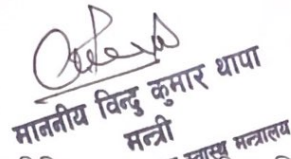 माननीय विन्दु कुमार थापा
मन्त्री
स्वास्थ मन्त्रालय